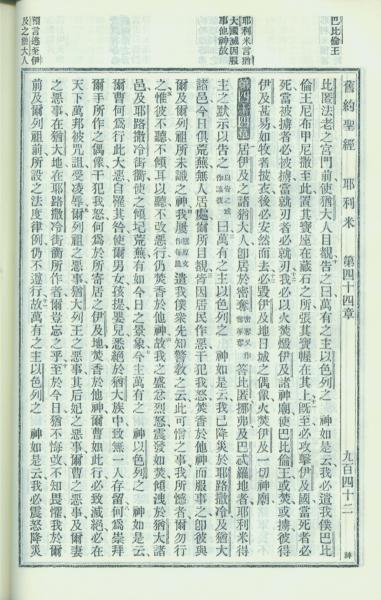 舊約聖經 耶利米 第四十四章 九百四十二
巴比倫王
耶利米言猶
大國滅因服
事他神故
預言逃至伊
及之猶大人
此匿法老之宮門前使猶大人目覩告之曰萬有之主以色列之 神如是云我必遣我僕巴比
倫王尼布甲尼撒至此置其寶座在藏石之所張其寶幄在其上既至必攻擊伊及國當死者必
死當被擄者必被擄當就刃者必就刃我必以火焚燬伊及諸神廟使巴比倫王或焚或擄彼得
伊及甚易如牧者披衣後必安然而去必毀伊及地日城之偶像火焚伊及一切神廟
第四十四章 居伊及之諸猶大人卽居於密奪 答比匿挪弗及巴忒羅地者耶利米得
主之默示以告之 曰萬有之主以色列之 神如是云我已降災於耶路撒冷及猶大
諸邑今日俱荒蕪無人居處爾所目覩皆因居民作惡干犯我怒焚香於他神而服事之卽彼與
爾及爾列祖所未識之神我屢 遣我僕眾先知警教之云此可憎之事我所憾者爾勿行
之惟彼不聽不傾耳以聽不改惡行仍焚香於他神故我之盛忿烈怒震發如焚傾洩於猶大諸
邑及耶路撒冷街衢使之傾圮荒蕪有如今日之景象今主萬有之 神以色列之 神如是云
爾曹何爲行此大惡自罹其咎使爾男女孩提嬰兒悉絕於猶大族中致無一人存留何爲崇拜
爾手所作之偶像干犯我怒何爲於所寄居之伊及地焚香於他神爾曹如此行必致滅絕必在
天下萬邦被咒詛受凌辱爾列祖之惡事猶大列王之惡事其后妃之惡事爾曹之惡事及爾妻
之惡事在猶大地在耶路撒冷街衢所作者爾豈忘之乎至於今日猶不悔改不知畏懼我於爾
前及爾列祖前所設之法度律例仍不遵行故萬有之主以色列之 神如是云我必震怒降災